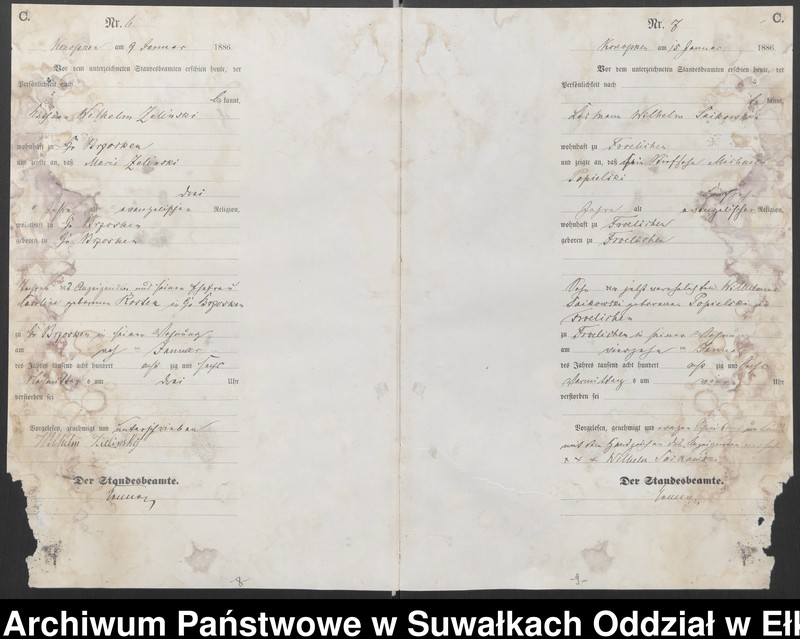 C.
Nr. 6
am 9 Januar 1886.
Vor dem unterzeichneten Standesbeamten erschien heute, der
Persönlichkeit nach
bekannt,
Wilhelm Zelinski
wohnhaft zu Gr Brzosken
und zeigte an, daß Marie Zelinski
drei
Jahre alt evangelischer Religion,
wohnhaft zu Gr Brzosken
geboren zu Gr Brzosken
Anzeigenden und seiner Ehefrau
Caroline geborenen in Gr Brzosken
zu Gr Brzosken in seiner Wohnung
am Januar
des Jahres tausend acht hundert acht zig und sechs
Nachmittag s um drei Uhr
verstorben sei
Vorgelesen, genehmigt und unterschrieben
Wilhelm Zillinsky
Der Standesbeamte.
8
C.
Nr. 7
am 15 Januar 1886.
Vor dem unterzeichneten Standesbeamten erschien heute, der
Persönlichkeit nach
bekannt,
Wilhelm Saikowski
wohnhaft zu Froelichen
und zeigte an, daß sein Stiefsohn
Popielski
Jahre alt evangelischer Religion,
wohnhaft zu Froelichen
geboren zu Froelichen
Sohn der jetzt verehelichten Wilhelmine
Saikowski geborenen Popielski zu
Froelichen
zu Froelichen in seiner Wohnung
am vierzehn Januar
des Jahres tausend acht hundert acht zig und sechs
Vormittag s um Uhr
verstorben sei
Vorgelesen, genehmigt und wegen
mit dem Handzeichen des Anzeigenden
+ + + Wilhelm Saikowski
Der Standesbeamte.
-9-
Archiwum Państwowe w Suwałkach Oddział w Eł